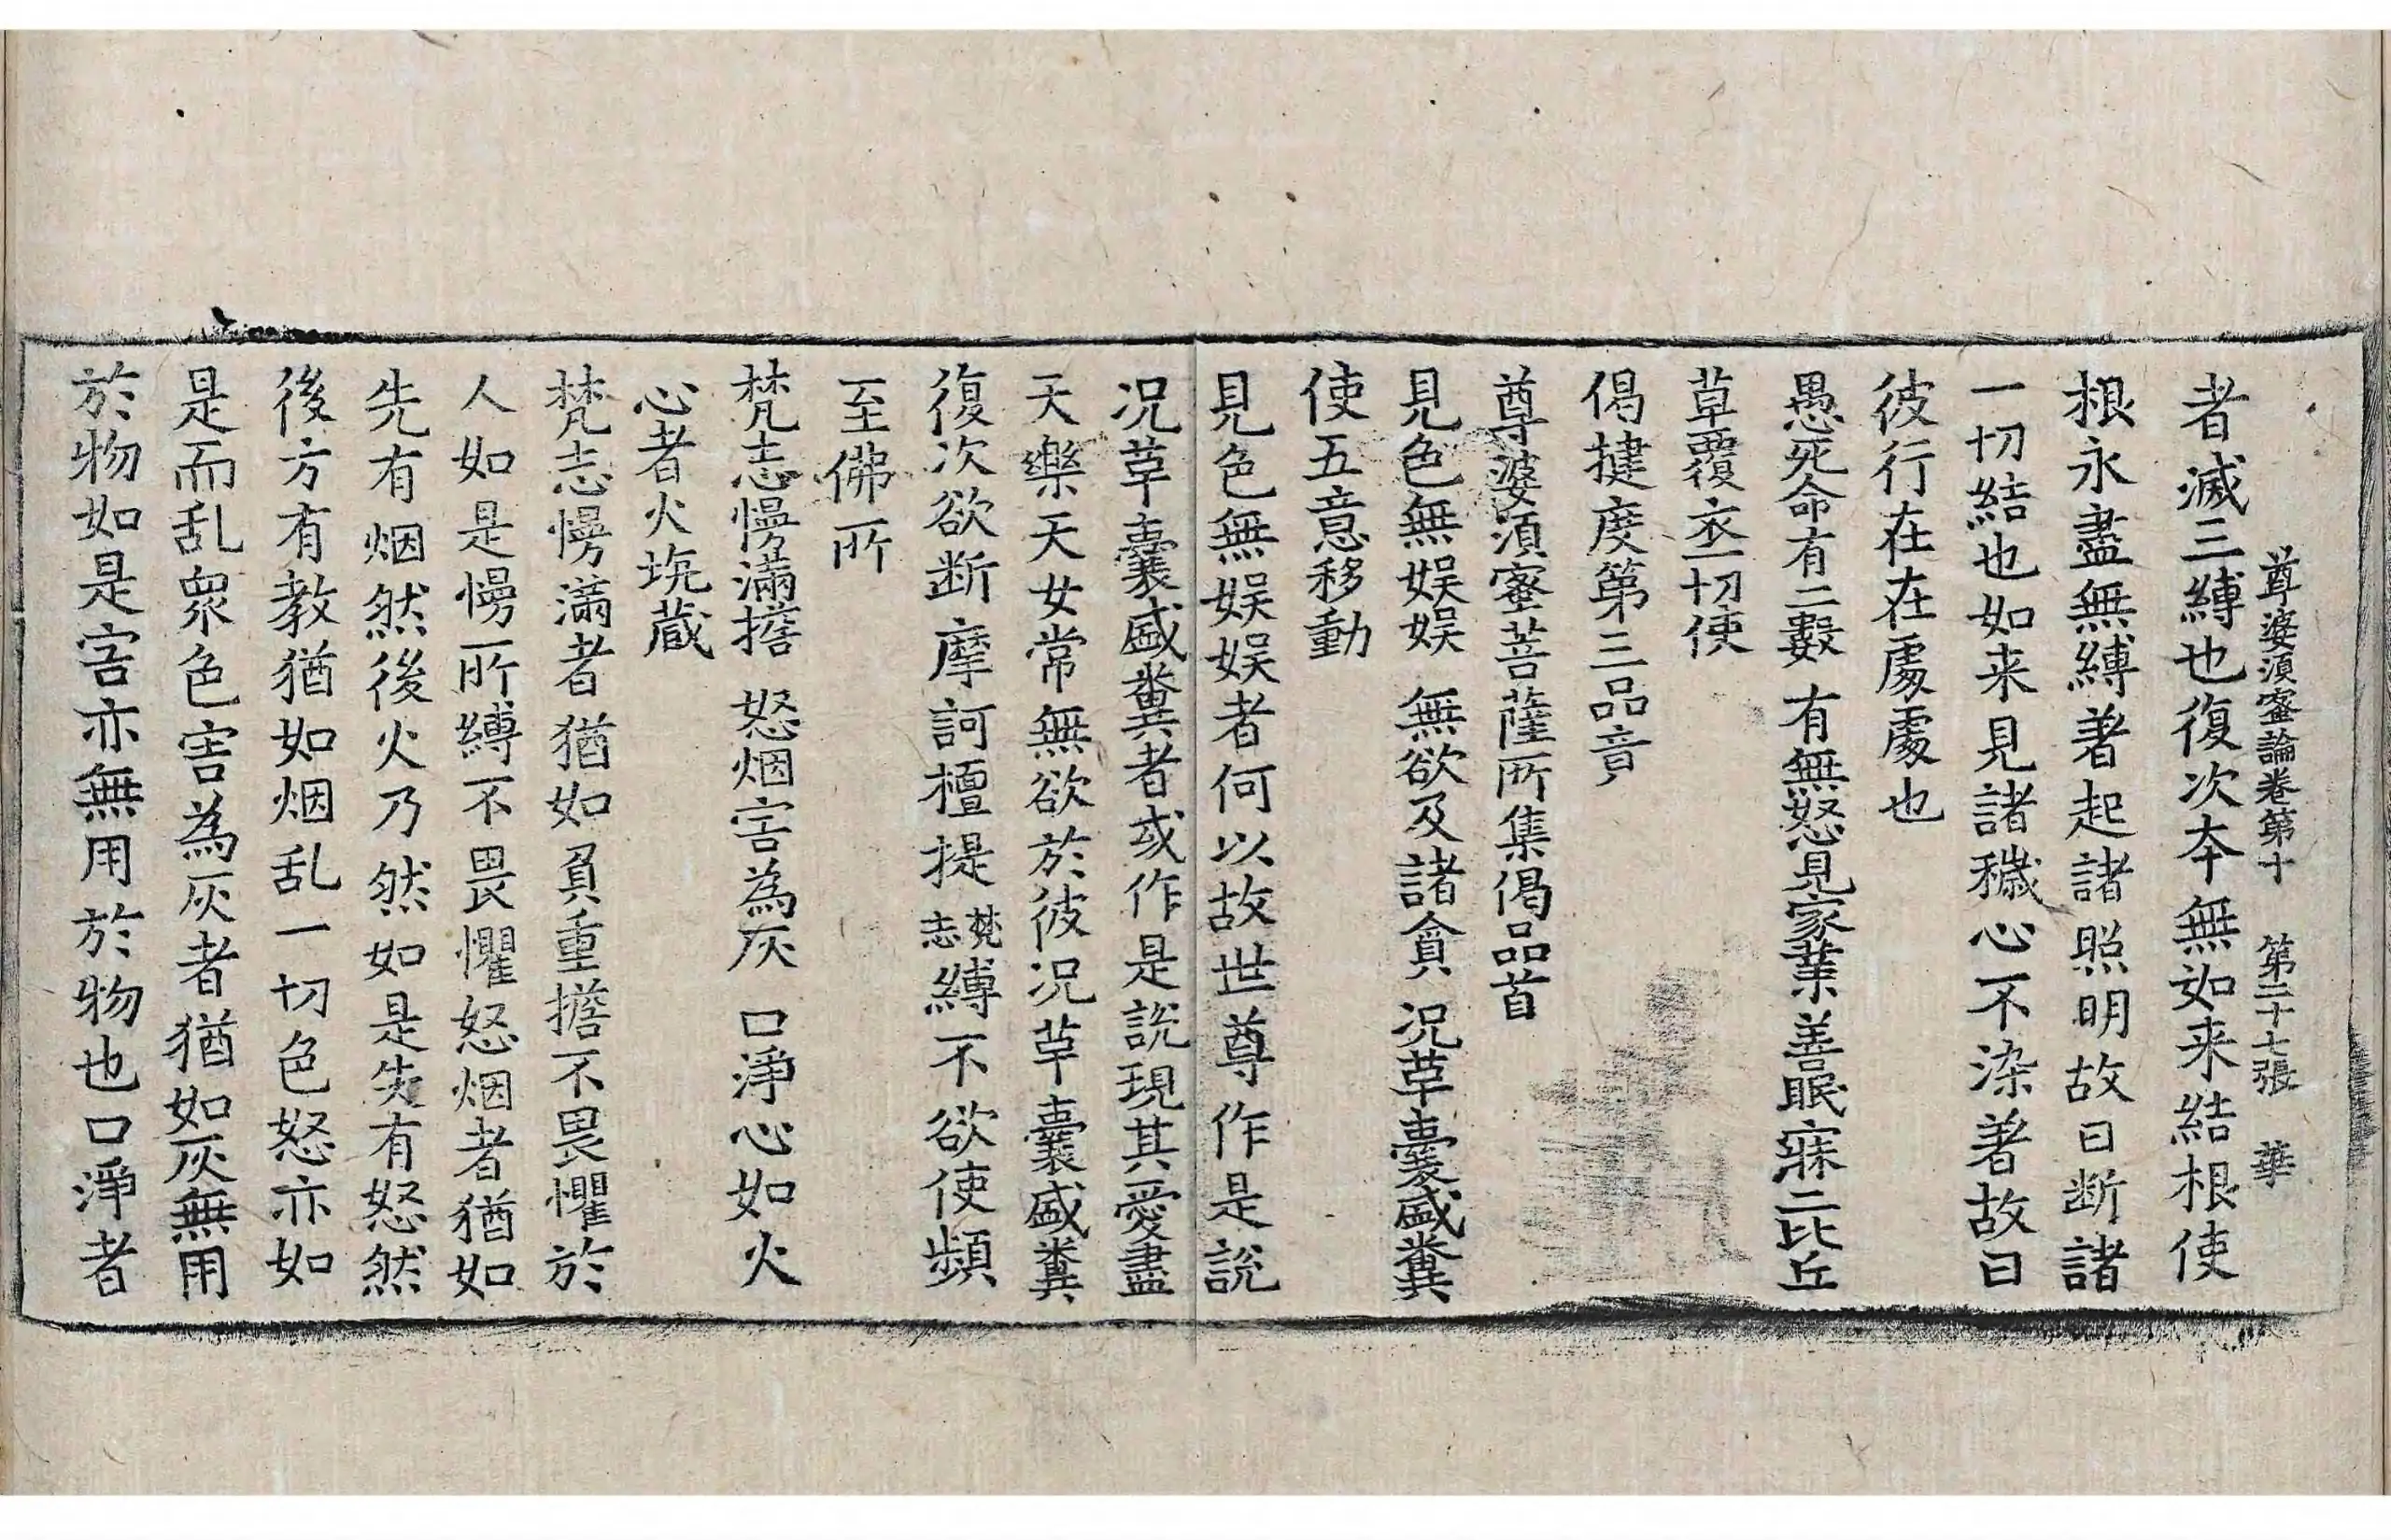 尊婆須蜜論卷第十　第二十七張　華
者滅三縛也復次本無如来結根使
根永盡無縛著起諸照明故曰断諸
一切結也如来見諸穢心不染著故曰
彼行在在處處也
愚死命有二數　有無怒見家業　善眠寐二比丘
草覆衣一切使
偈揵度第三品竟
尊婆須蜜菩薩所集偈品首
見色無娱娱　無欲及諸貪　况革囊盛糞
使五意移動
見色無娱娱者何以故世尊作是說
况革囊盛糞者或作是說現其愛盡
天樂天女常無欲於彼况革囊盛糞
復次欲断摩訶檀提梵志縛不欲使頻
至佛所
梵志慢滿擔　怒烟害為灰　口淨心如火
心者火坑蔵
梵志慢滿者猶如負重擔不畏懼於
人如是慢所縛不畏懼怒烟者猶如
先有烟然後火乃然如是先有怒然
後方有教猶如烟乱一切色怒亦如
是而乱衆色害為灰者猶如灰無用
於物如是害亦無用於物也口淨者